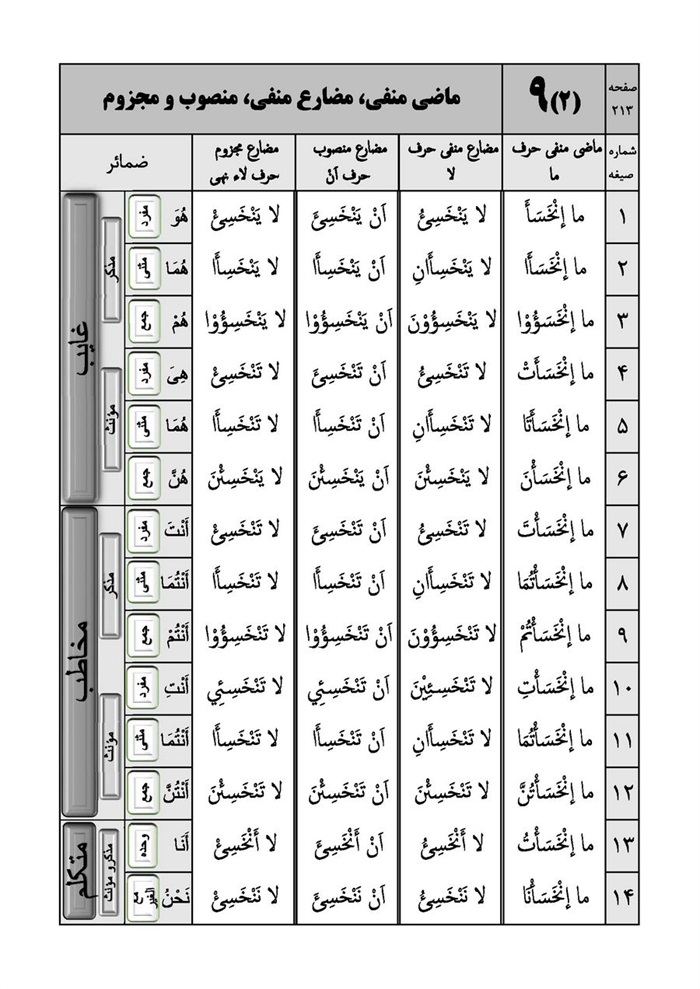 صفحه ۲۱۳ | ۹(۲) | ماضی منفی، مضارع منفی، منصوب و مجزوم
شماره صیغه | ماضی منفی حرف ما | مضارع منفی حرف لا | مضارع منصوب حرف اَنْ | مضارع مجزوم حرف لاء نهی | ضمائر
۱ | ما إنْخَسَأَ | لا يَنْخَسِئُ | اَنْ يَنْخَسِئَ | لا يَنْخَسِئْ | هُوَ | مفرد | مذکر | غایب
۲ | ما إنْخَسَأَا | لا يَنْخَسِأَانِ | اَنْ يَنْخَسِأَا | لا يَنْخَسِأَا | هُمَا | مثنی
۳ | ما إنْخَسَؤُوْا | لا يَنْخَسِؤُوْنَ | اَنْ يَنْخَسِؤُوْا | لا يَنْخَسِؤُوْا | هُمْ | جمع
۴ | ما إنْخَسَأَتْ | لا تَنْخَسِئُ | اَنْ تَنْخَسِئَ | لا تَنْخَسِئْ | هِىَ | مفرد | مؤنث
۵ | ما إنْخَسَأَتَا | لا تَنْخَسِأَانِ | اَنْ تَنْخَسِأَا | لا تَنْخَسِأَا | هُمَا | مثنی
۶ | ما إنْخَسَأْنَ | لا يَنْخَسِئْنَ | اَنْ يَنْخَسِئْنَ | لا يَنْخَسِئْنَ | هُنَّ | جمع
۷ | ما إنْخَسَأْتَ | لا تَنْخَسِئُ | اَنْ تَنْخَسِئَ | لا تَنْخَسِئْ | أَنْتَ | مفرد | مذکر | مخاطب
۸ | ما إنْخَسَأْتُمَا | لا تَنْخَسِأَانِ | اَنْ تَنْخَسِأَا | لا تَنْخَسِأَا | أَنْتُمَا | مثنی
۹ | ما إنْخَسَأْتُمْ | لا تَنْخَسِؤُوْنَ | اَنْ تَنْخَسِؤُوْا | لا تَنْخَسِؤُوْا | أَنْتُمْ | جمع
۱۰ | ما إنْخَسَأْتِ | لا تَنْخَسِئِيْنَ | اَنْ تَنْخَسِئِي | لا تَنْخَسِئِي | أَنْتِ | مفرد | مؤنث
۱۱ | ما إنْخَسَأْتُمَا | لا تَنْخَسِأَانِ | اَنْ تَنْخَسِأَا | لا تَنْخَسِأَا | أَنْتُمَا | مثنی
۱۲ | ما إنْخَسَأْتُنَّ | لا تَنْخَسِئْنَ | اَنْ تَنْخَسِئْنَ | لا تَنْخَسِئْنَ | أَنْتُنَّ | جمع
۱۳ | ما إنْخَسَأْتُ | لا أَنْخَسِئُ | اَنْ أَنْخَسِئَ | لا أَنْخَسِئْ | أَنَا | وحده | مذکر و مؤنث | متکلم
۱۴ | ما إنْخَسَأْنَا | لا نَنْخَسِئُ | اَنْ نَنْخَسِئَ | لا نَنْخَسِئْ | نَحْنُ | مع الغیر